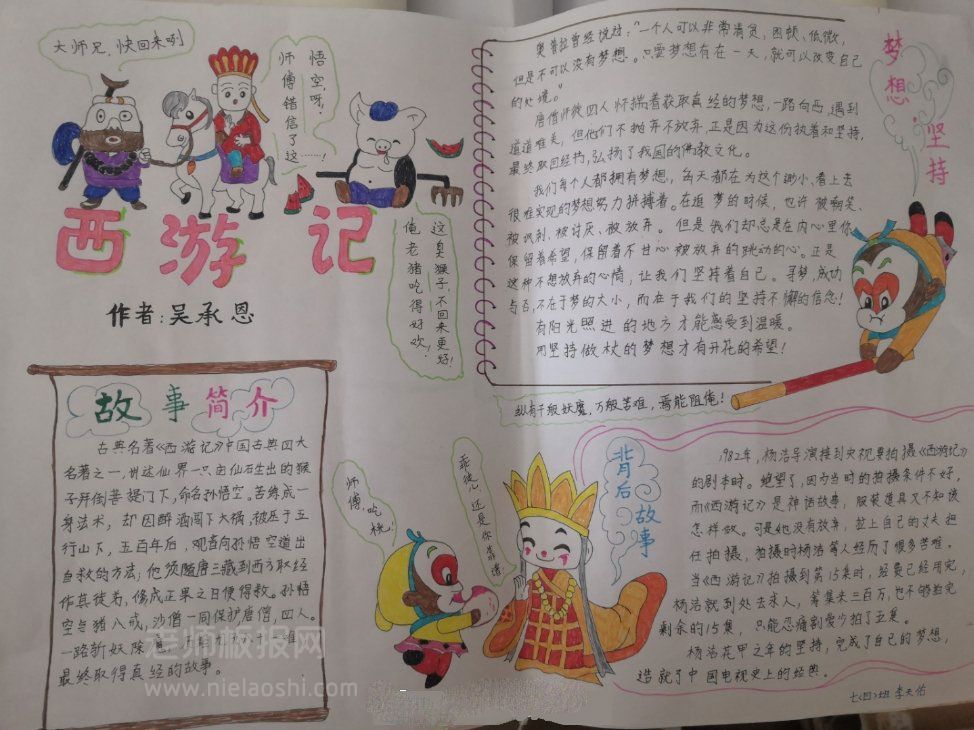 大师兄，快回来咧
悟空呀，
师傅错信了
这……！
西游记
作者：吴承恩
这臭猴子，不回来更好！
俺老猪吃得好欢！
故事简介
古典名著《西游记》中国古典四大
名著之一，讲述仙界一只由仙石生出的猴
子拜倒菩提门下，命名孙悟空。苦练成一
身法术，却因醉酒闯下大祸，被压于五
行山下，五百年后，观音向孙悟空道出
自救的方法：他须随唐三藏到西方取经
作其徒弟，修成正果之日便得救。孙悟
空与猪八戒，沙僧一同保护唐僧，四人
一路斩妖除
最终取得真经的故事。
老师板报网
www.nielaoshi.com
奥普拉曾经说过：“一个人可以非常清贫，困顿、低微，
但是不可以没有梦想。只要梦想存在一天，就可以改变自己
的处境。”
唐僧师徒四人怀揣着获取真经的梦想，一路向西，遇到
道道难关，但他们不抛弃不放弃，正是因为这份执着和坚持，
最终取回经书，弘扬了我国的佛教文化。
我们每个人都拥有梦想，每天都在为这个渺小，看上去
很难实现的梦想努力拼搏着。在追梦的时候，也许被嘲笑、
被讽刺、被讨厌、被放弃。但是我们却总是在内心里你
保留着希望，保留着不甘心被放弃的跳动的心。正是
这种不想放弃的心情，让我们坚持着自己。寻梦，成功
与否，不在于梦的大小，而在于我们的坚持不懈的信念！
有阳光照进的地方才能感受到温暖。
用坚持做杖的梦想才有开花的希望！
梦想·坚持
纵有千般妖魔，万般苦难，焉能阻俺！
师傅，吃桃！
乖徒儿，还是你靠谱
背后故事
1982年，杨洁导演接到央视要拍摄《西游记》
的剧本时。绝望了，因为当时的拍摄条件不好，
而《西游记》是神话故事，服装道具又不知该
怎样做。可是她没有放弃，拉上自己的丈夫担
任拍摄，拍摄时杨洁等人经历了很多苦难。
当《西游记》拍摄到第15集时，经费已经用完，
杨洁就到处去求人，筹集来三百万，也不够拍完
剩余的15集，只能忍痛割爱少拍了五集。
杨洁花甲之年的坚持，完成了自己的梦想，
造就了中国电视史上的经典。
七〈四〉班 李天佑